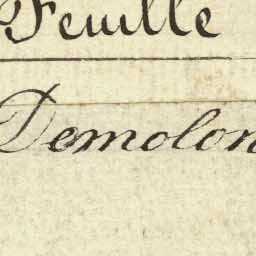 Feuille
Demolon